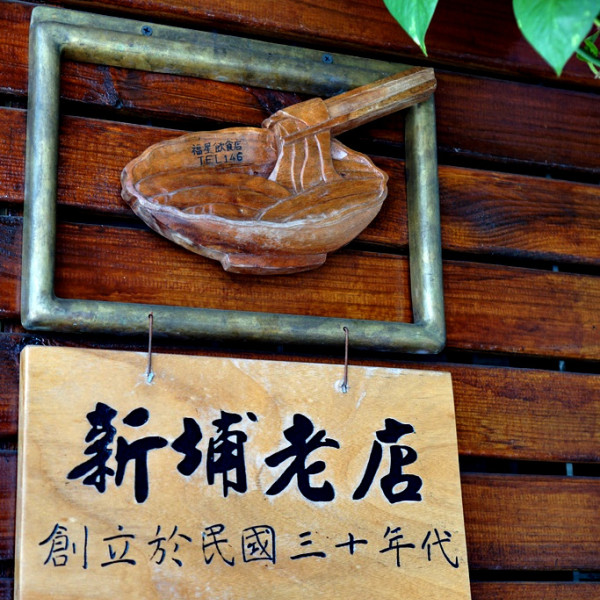 福星飲食店
TEL146
新埔老店
創立於民國三十年代